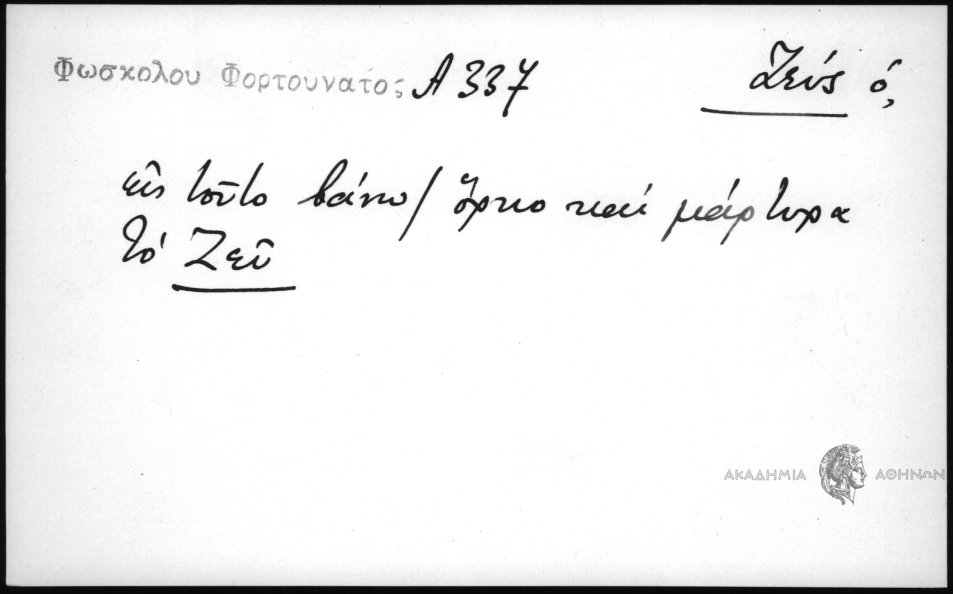 Φωσκολου Φορτουνατος Α 337 Ζεύς ὁ,
εἰς τοῦτο βάνω / ὅρκο καὶ μάρτυρα
τὸ Ζεῦ
ΑΚΑΔΗΜΙΑ ΑΘΗΝΩΝ